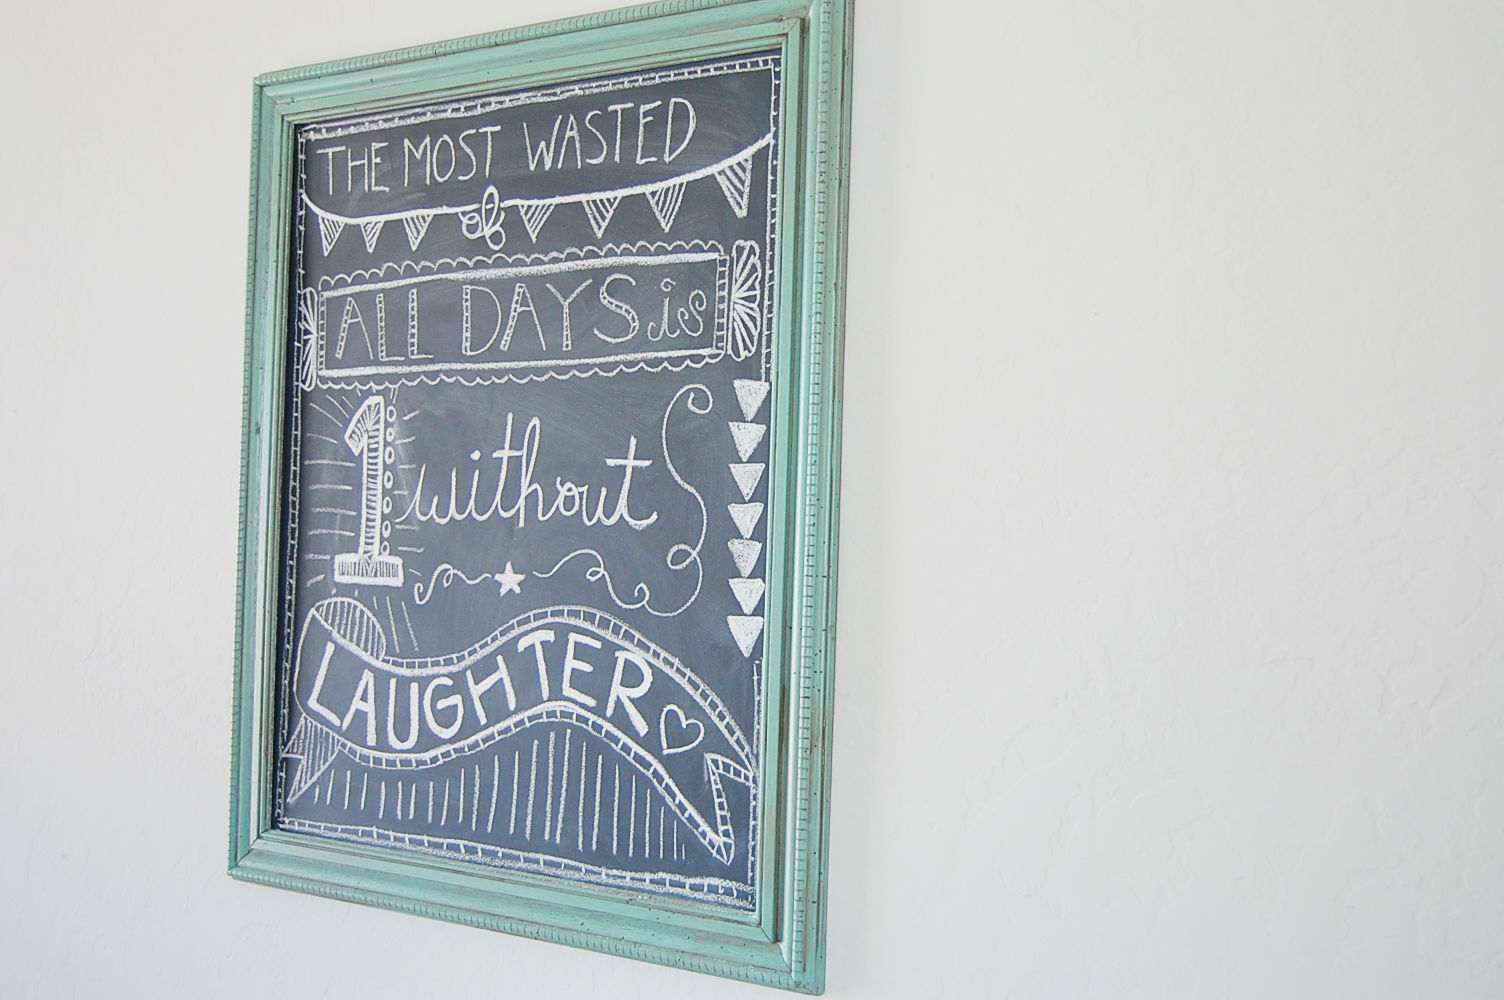 THE MOST WASTED
of
ALL DAYS is
1 without
LAUGHTER